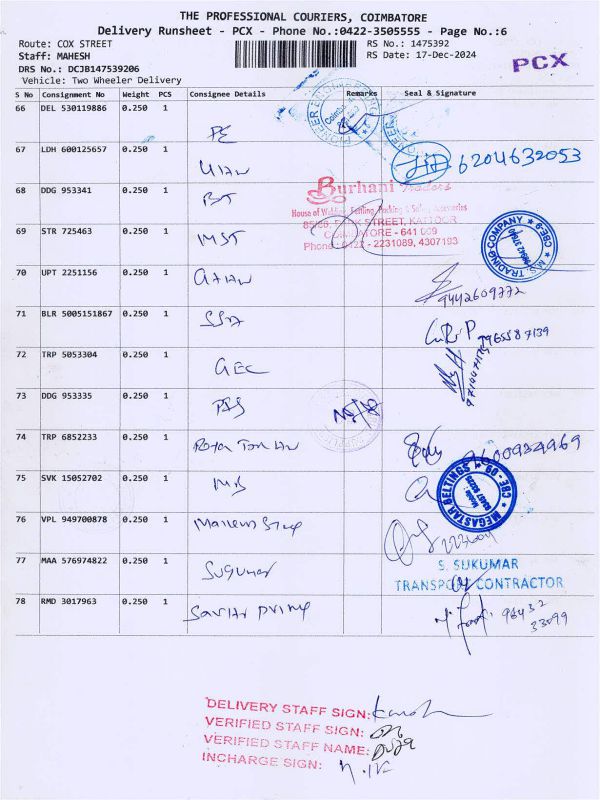 THE PROFESSIONAL COURIERS, COIMBATORE
Delivery Runsheet - PCX - Phone No.:0422-3505555 - Page No.:6
Route: COX STREET
RS No.: 1475392
Staff: MAHESH
RS Date: 17-Dec-2024
DRS No.: DCJB147539206
PCX
Vehicle: Two Wheeler Delivery
S No Consignment No Weight PCS Consignee Details Remarks Seal & Signature
66 DEL 530119886 0.250 1 PE
67 LDH 600125657 0.250 1 6204632053
68 DDG 953341 0.250 1 BT
Burhani Traders
House of Welding, Fettling, Packing & Safety Accessories
STREET, KATTOOR
COIMBATORE - 641 009
Phone : 0422 - 2231089, 4307193
69 STR 725463 0.250 1 MST
M.S. TRADING COMPANY CBE-9
70 UPT 2251156 0.250 1 9442609772
71 BLR 5005151867 0.250 1 SSA
72 TRP 5053304 0.250 1 GEC
73 DDG 953335 0.250 1
74 TRP 6852233 0.250 1 9600934969
75 SVK 15052702 0.250 1 MB
MEGASTAR BELTINGS CBE-09
76 VPL 949700878 0.250 1
77 MAA 576974822 0.250 1 Sugumar
S. SUKUMAR
TRANSPORT CONTRACTOR
78 RMD 3017963 0.250 1 96432
33099
DELIVERY STAFF SIGN:
VERIFIED STAFF SIGN:
VERIFIED STAFF NAME:
INCHARGE SIGN: